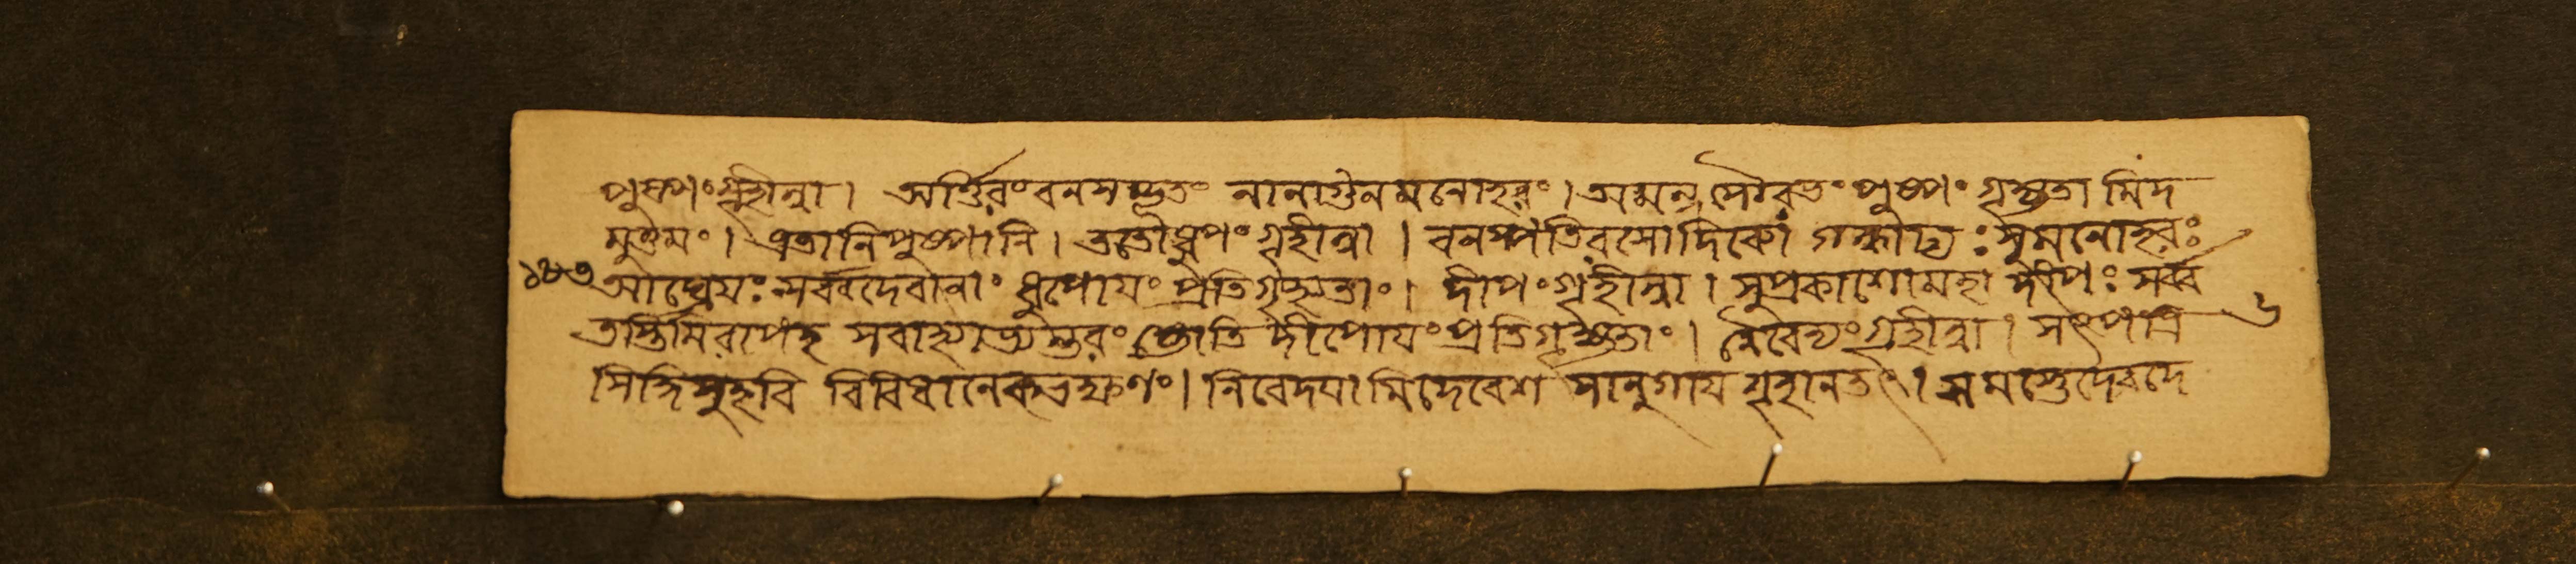 পুষ্পং গৃহীত্বা। আর্ত্তবং বনসম্ভূতং নানাগুনমনোহরং। অমর্ত্য পুষ্পং গৃহ্যতামিদ
মুত্তমং। এতানি পুষ্পানি। ততো ধুপং গৃহীত্বা। বনস্পতিরসো দিব্যো গন্ধাঢ্যঃ সুমনোহরঃ
১৮৩ আঘ্রেয়ঃ সর্ব্বদেবানাং ধুপোয়ং প্রতিগৃহ্যতাং। দীপং গৃহীত্বা। সুপ্রকাশো মহাদীপঃ সর্ব্ব
তস্তিমিরাপহ সবাহ্যাভ্যন্তরং জ্যোতি দীপোয়ং প্রতিগৃহ্যতাং। নৈবেদ্যং গৃহীত্বা। সৎপাত্র ৬
সিদ্ধি সুহবি বিবিধানেকভক্ষণং। নিবেদয়ামি দেবেশ সানুগায় গৃহানতৎ।